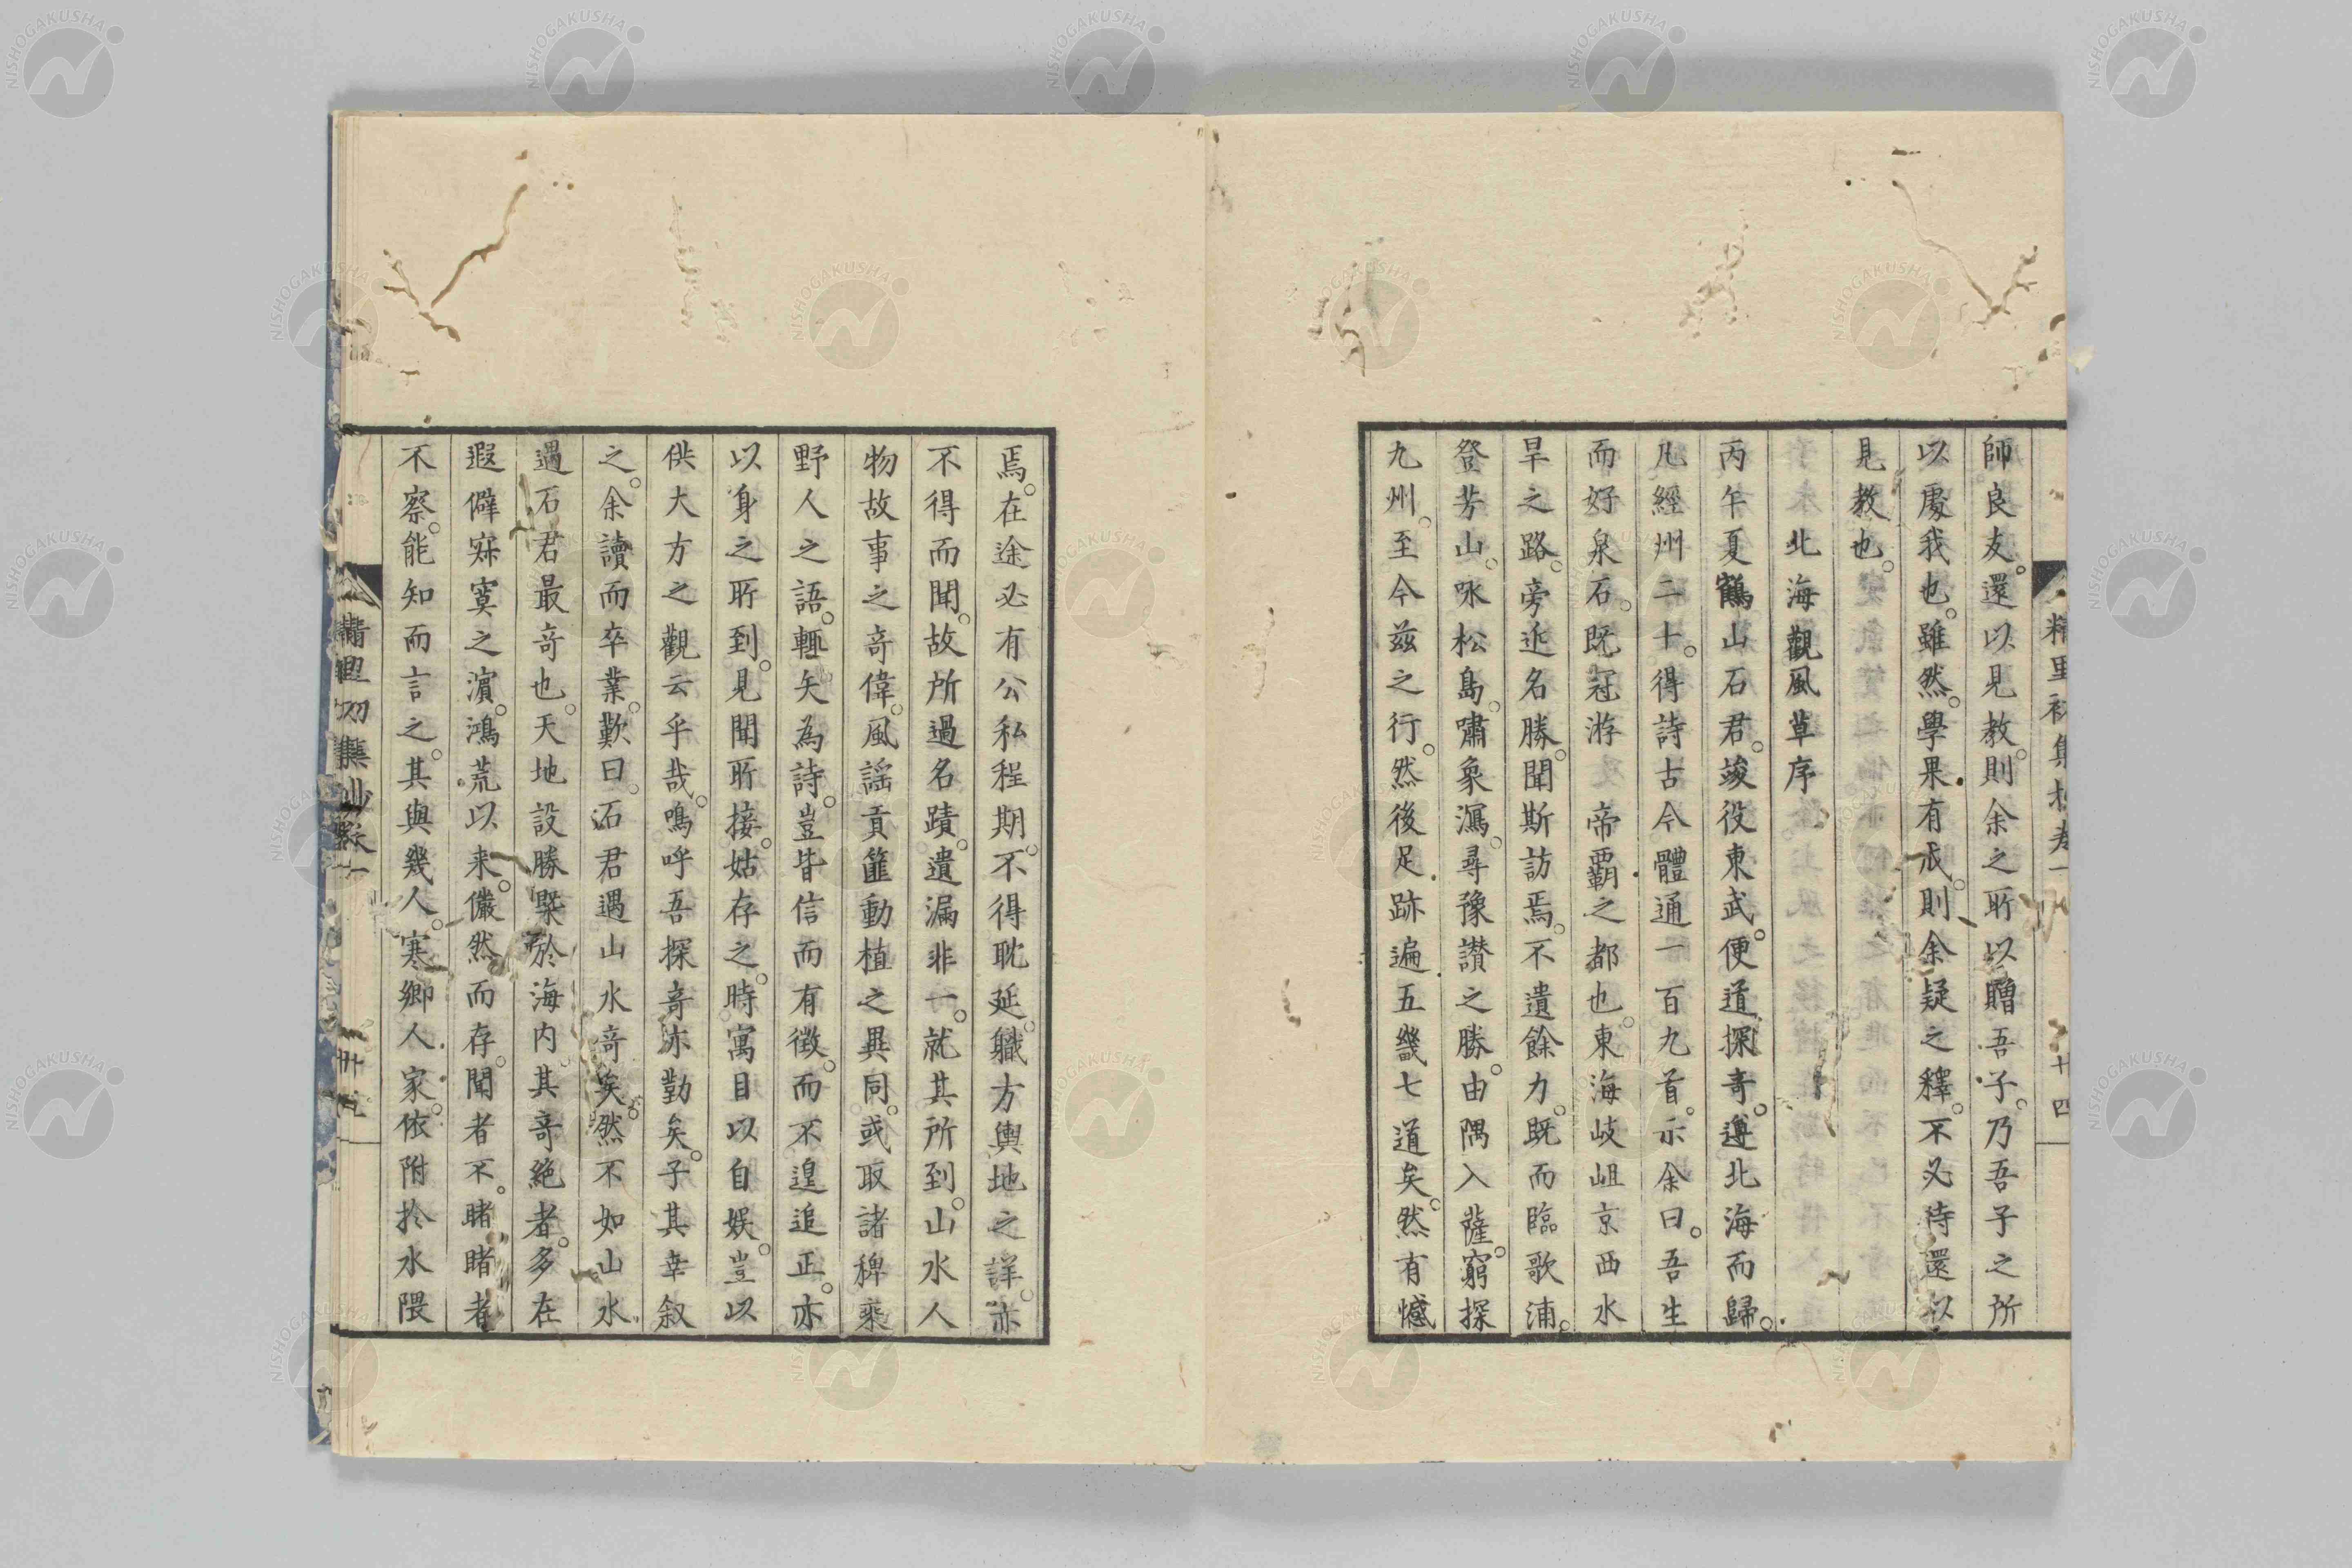 師良友還以見教則余之所以贈吾子乃吾子之所
以處我也雖然學果有成則余疑之釋不必待還以
見教也
北海觀風草序
丙午夏鶴山石君竣役東武便道探奇遵北海而歸
凡經州二十得詩古今體通一百九首示余曰吾生
而好泉石既冠游 帝霸之都也東海岐岨京西水
旱之路旁近名勝聞斯訪焉不遺餘力既而臨歌浦
登芳山咏松島嘯象瀉尋豫讃之勝由隅入薩窮探
九州至今茲之行然後足跡遍五畿七道矣然有憾
焉在途必有公私程期不得耽延職方輿地之詳亦
不得而聞故所過名蹟遺漏非一就其所到山水人
物故事之奇偉風謡貢篚動植之異同或取諸稗乘
野人之語輒矢為詩豈皆信而有徴而不遑追正亦
以身之所到見聞所接姑存之時寓目以自娯豈以
供大方之觀云乎哉鳴呼吾探奇亦勤矣子其幸叙
之余讀而卒業歎曰石君遇山水奇矣然不如山水
遇石君最奇也天地設勝槩於海内其奇絶者多在
遐僻寂寞之濵鴻荒以来儼然而存聞者不睹睹者
不察能知而言之其與幾人寒郷人家依附於水隈
精里初集抄卷一
十四
NISHOGAKUSHA